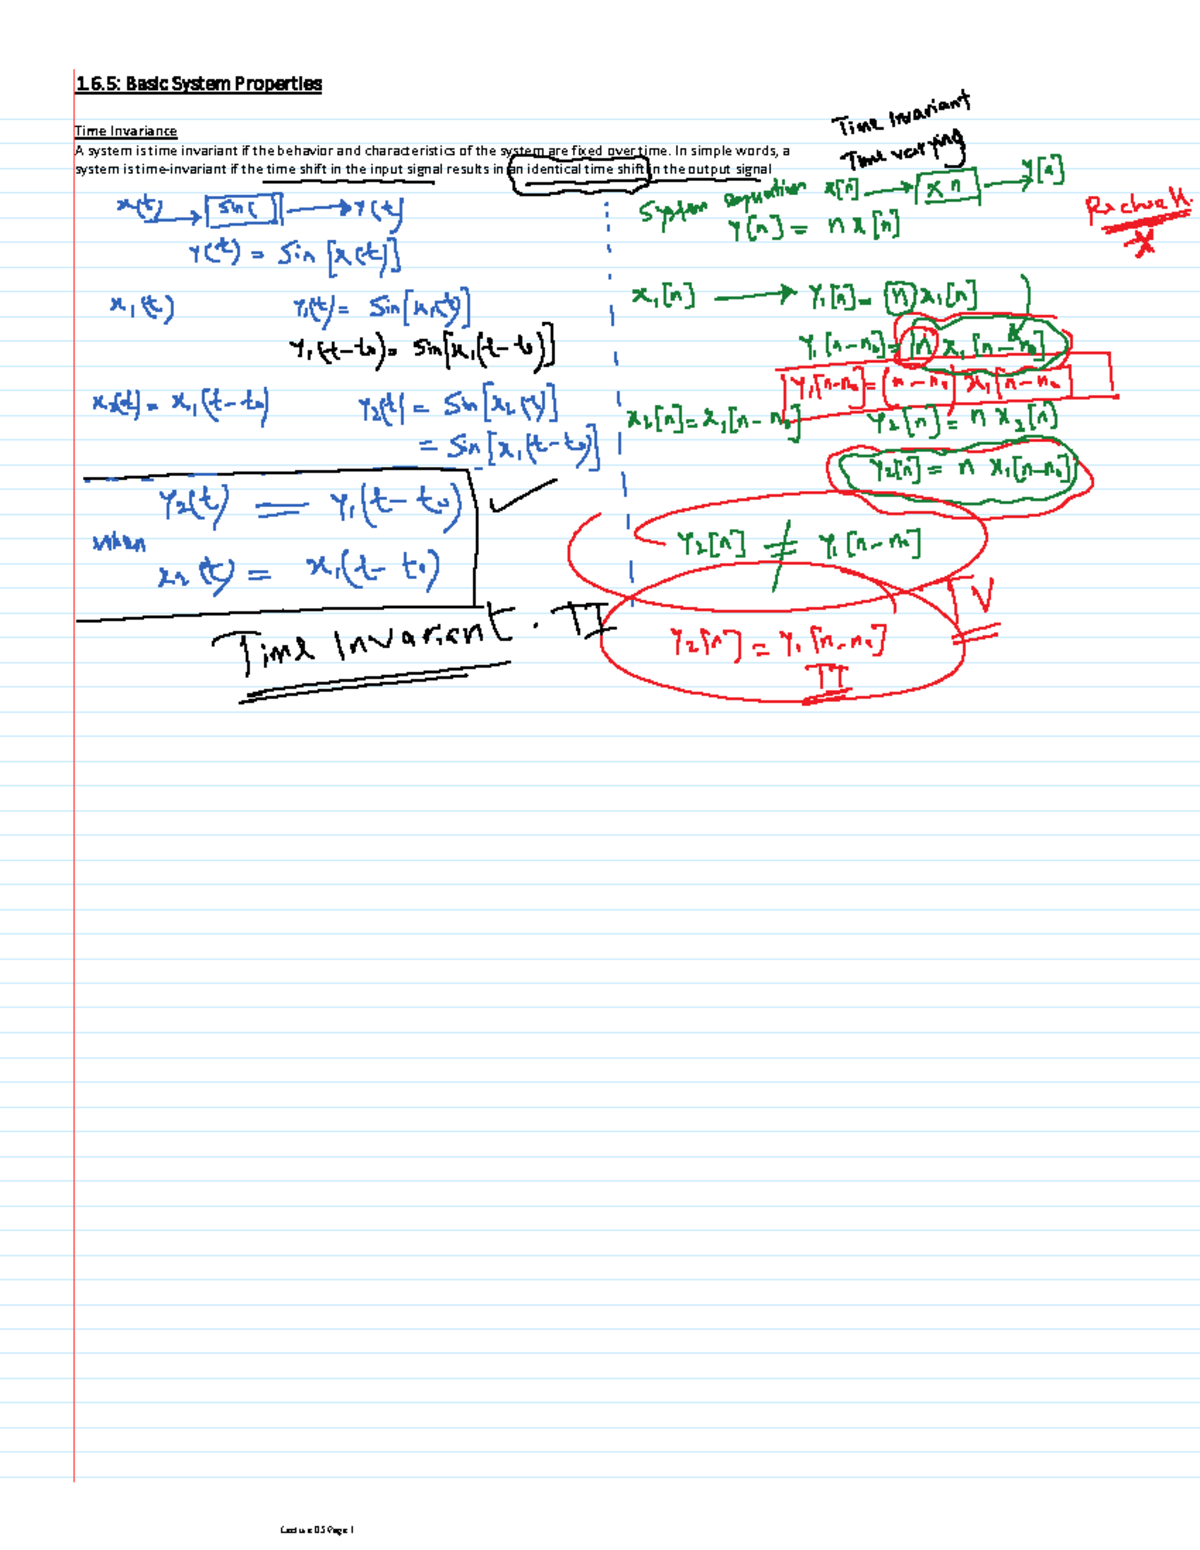 1.6.5: Basic System Properties
Time Invariance
A system is time invariant if the behavior and characteristics of the system are fixed over time. In simple words, a
system is time-invariant if the time shift in the input signal results in an identical time shift in the output signal
x(t) → sin( ) → y(t)
y(t) = sin [x(t)]
x₁(t) y₁(t) = sin[x₁(t)]
y₁(t-t₀) = sin[x₁(t-t₀)]
x₂(t) = x₁(t-t₀) y₂(t) = sin[x₂(t)]
= sin[x₁(t-t₀)]
y₂(t) = y₁(t-t₀)
when
x₂(t) = x₁(t-t₀)
Time Invariant. TI
Time Invariant
Time varying
System equation x[n] → x n → y[n]
y[n] = n x[n]
x₁[n] → y₁[n] = n x₁[n]
y₁[n-n₀] = n x₁[n-n₀]
y₁[n-n₀] = (n-n₀) x₁[n-n₀]
x₂[n] = x₁[n-n₀] y₂[n] = n x₂[n]
y₂[n] = n x₁[n-n₀]
y₂[n] ≠ y₁[n-n₀]
TV
y₂[n] = y₁[n-n₀]
TI
Lecture 05 Page 1